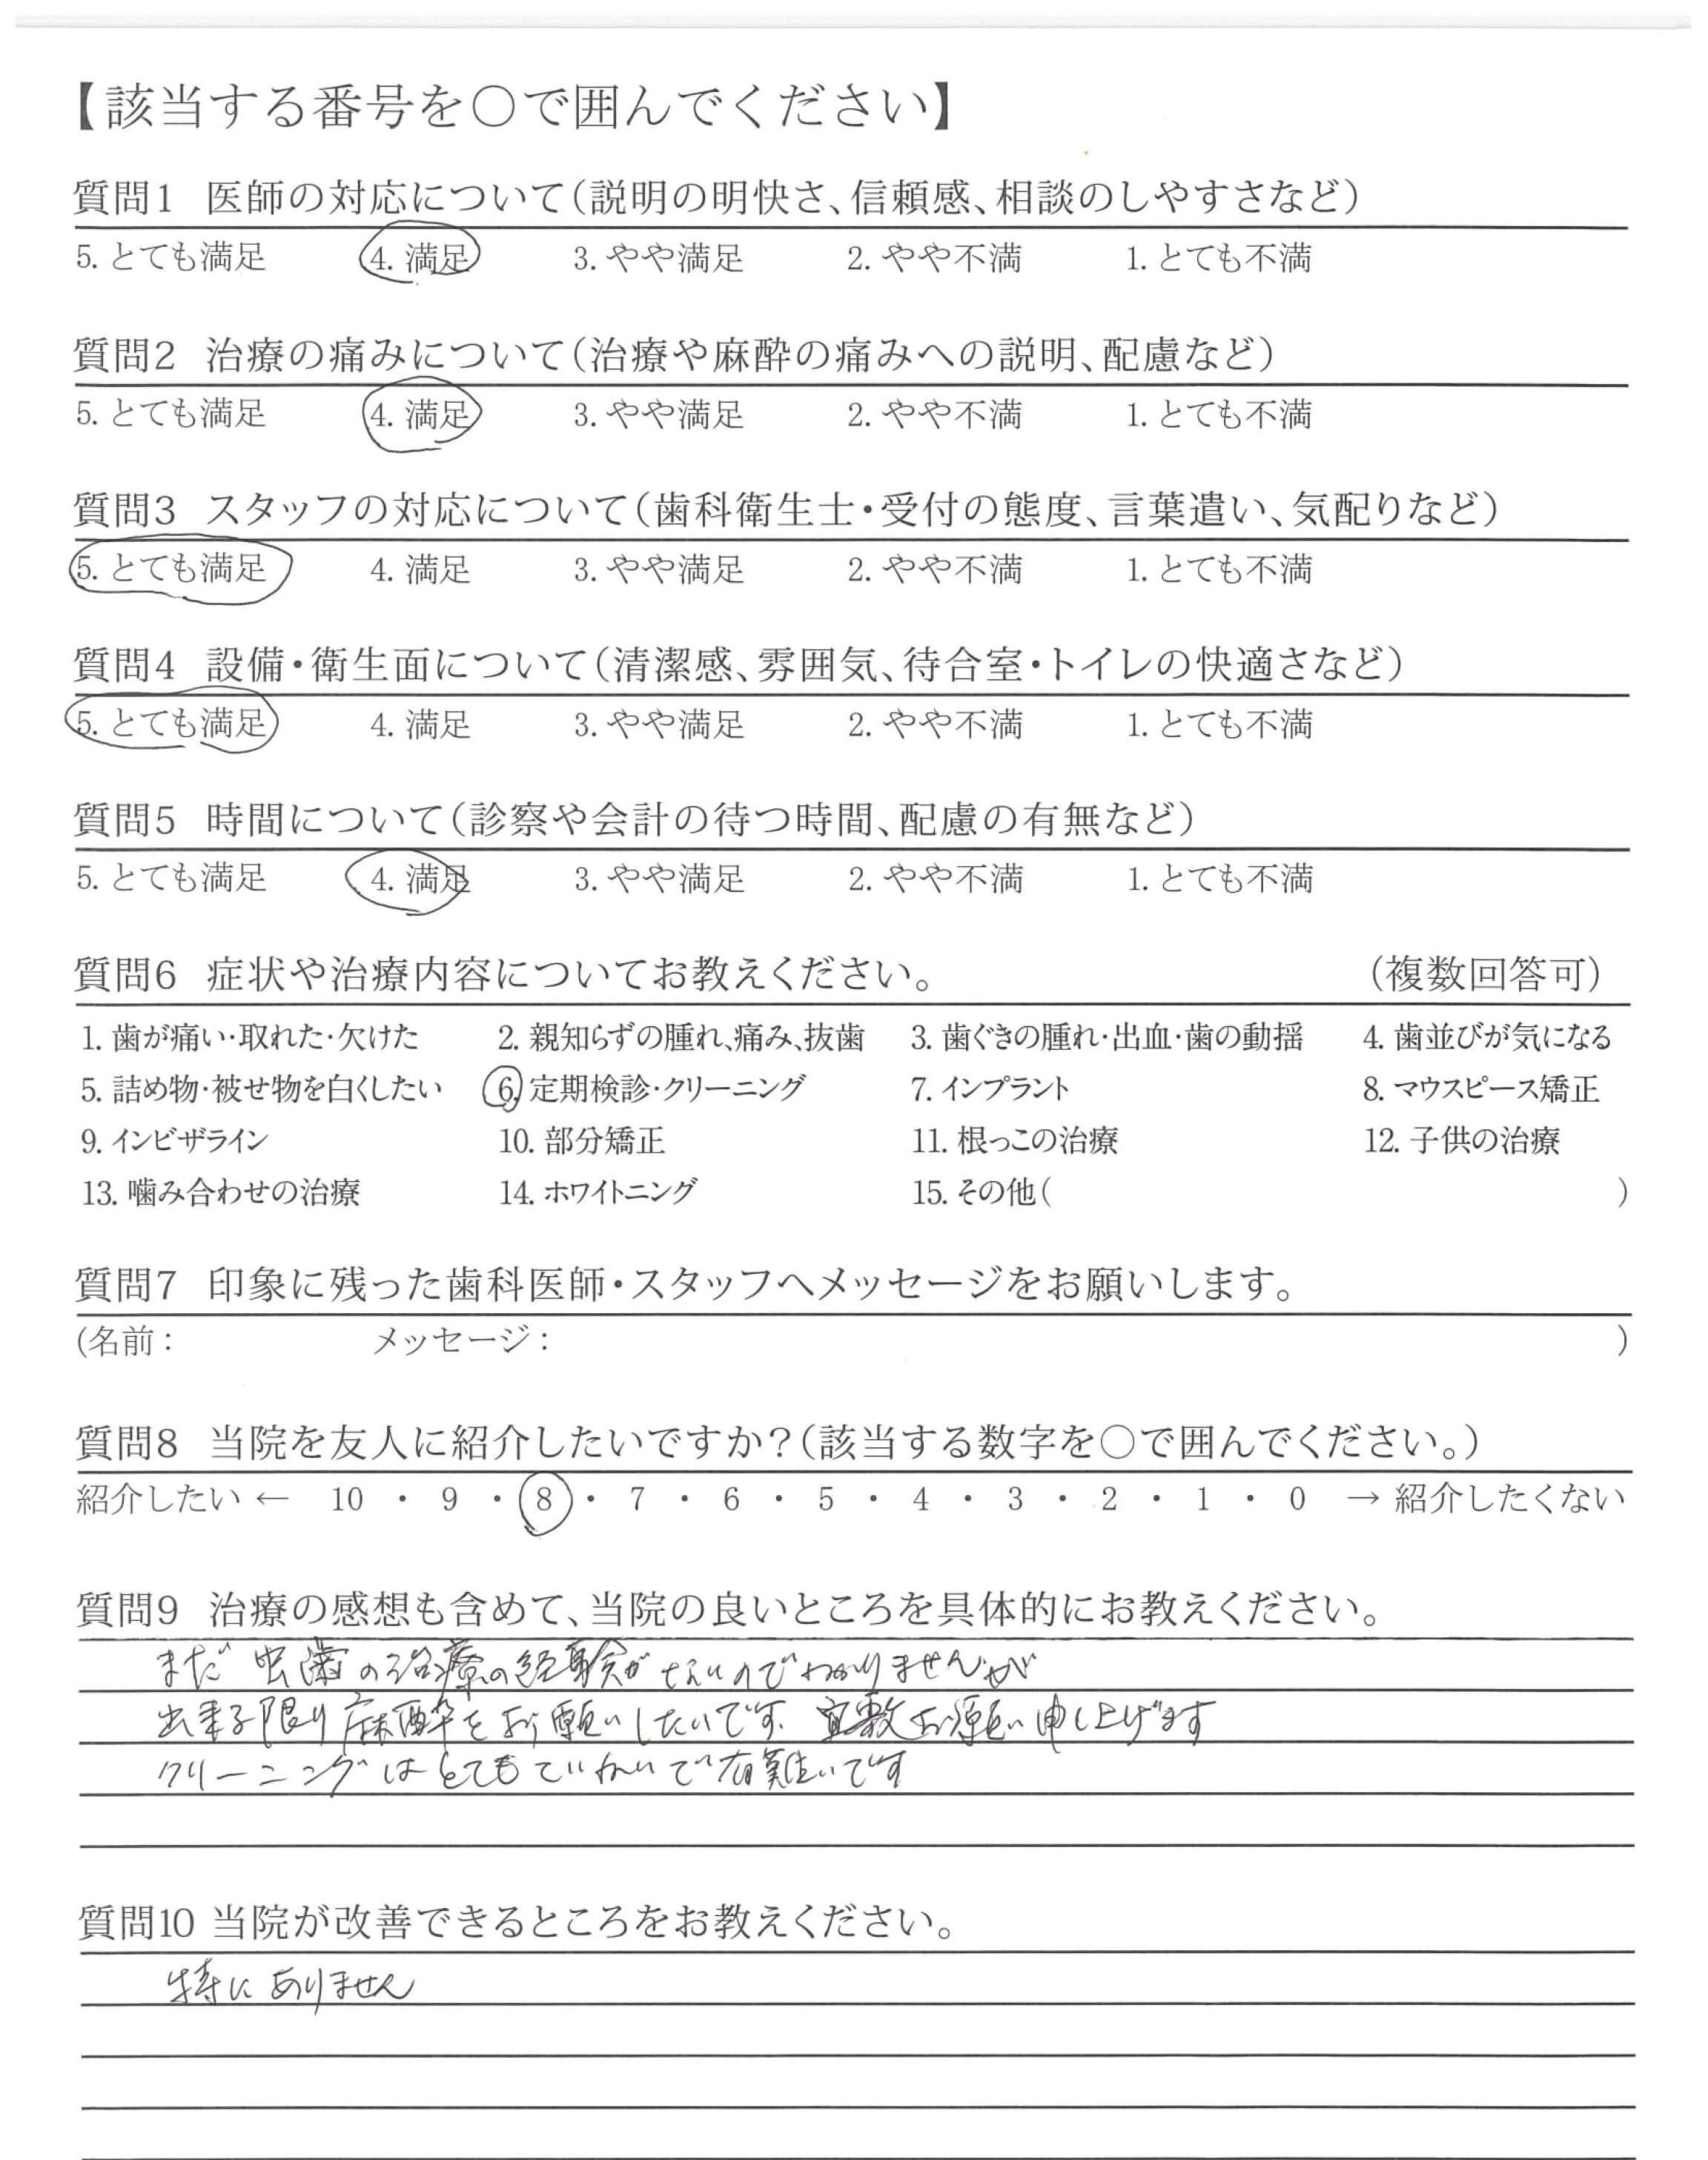 【該当する番号を○で囲んでください】
質問1 医師の対応について(説明の明快さ、信頼感、相談のしやすさなど)
5. とても満足 4. 満足 3. やや満足 2. やや不満 1. とても不満
質問2 治療の痛みについて(治療や麻酔の痛みへの説明、配慮など)
5. とても満足 4. 満足 3. やや満足 2. やや不満 1. とても不満
質問3 スタッフの対応について(歯科衛生士・受付の態度、言葉遣い、気配りなど)
5. とても満足 4. 満足 3. やや満足 2. やや不満 1. とても不満
質問4 設備・衛生面について(清潔感、雰囲気、待合室・トイレの快適さなど)
5. とても満足 4. 満足 3. やや満足 2. やや不満 1. とても不満
質問5 時間について(診察や会計の待つ時間、配慮の有無など)
5. とても満足 4. 満足 3. やや満足 2. やや不満 1. とても不満
質問6 症状や治療内容についてお教えください。 (複数回答可)
1. 歯が痛い・取れた・欠けた 2. 親知らずの腫れ、痛み、抜歯 3. 歯ぐきの腫れ・出血・歯の動揺 4. 歯並びが気になる
5. 詰め物・被せ物を白くしたい 6. 定期検診・クリーニング 7. インプラント 8. マウスピース矯正
9. インビザライン 10. 部分矯正 11. 根っこの治療 12. 子供の治療
13. 噛み合わせの治療 14. ホワイトニング 15. その他( )
質問7 印象に残った歯科医師・スタッフへメッセージをお願いします。
(名前: メッセージ: )
質問8 当院を友人に紹介したいですか?(該当する数字を○で囲んでください。)
紹介したい ← 10 ・ 9 ・ 8 ・ 7 ・ 6 ・ 5 ・ 4 ・ 3 ・ 2 ・ 1 ・ 0 → 紹介したくない
質問9 治療の感想も含めて、当院の良いところを具体的にお教えください。
まだ虫歯の治療の経験がないのでわかりませんが
出来る限り麻酔をお願いしたいです。宜敷お願い申し上げます
クリーニングはとてもていねいで有難いです
質問10 当院が改善できるところをお教えください。
特にありません